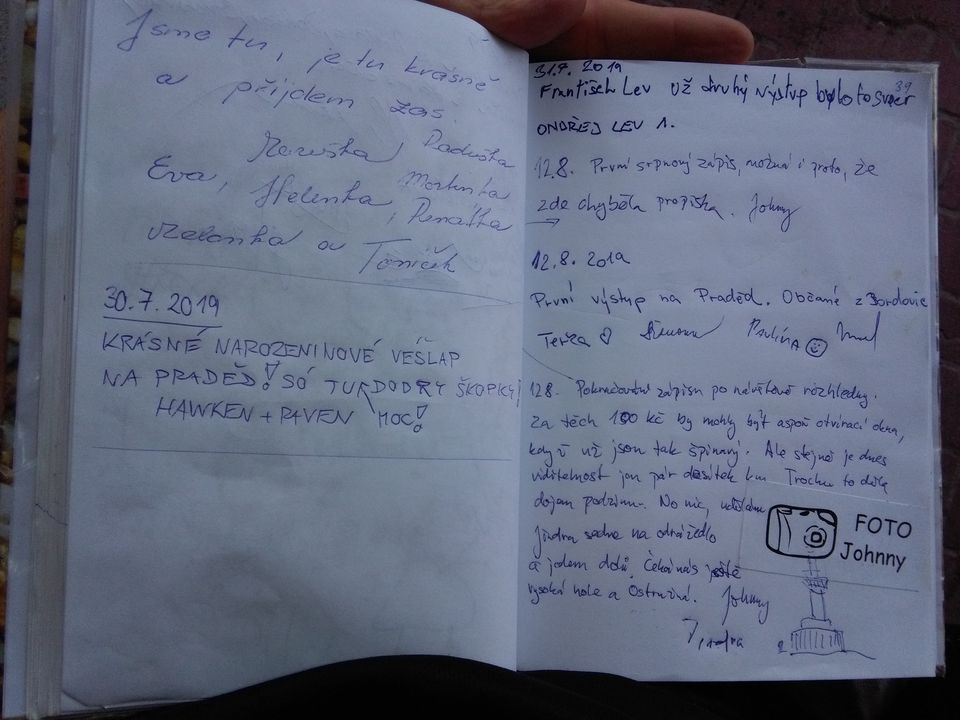 Jsme tu, je tu krásně
a přijdem zas.
Maruška, Raduška
Eva, Helenka, Martinka
, Renátka
a Toniček
30.7.2019
KRÁSNÉ NAROZENINOVÉ VEŠLAP
NA PRADĚD! SÓ TU DOBRY ŠKOPKY!
HAWKEN + PAVEN MOC!
31.7.2019
39
František Lev už druhý výstup bylo to super
ONDŘEJ LEV 1.
12.8. První srpnový zápis, možná i proto, že
zde chyběla propiska. Johny
12.8. 2019
První výstup na Praděd. Občané z Bordovic
Terža Pavlína
12.8. Pokračování zápisu po návštěvě rozhledny.
Za těch 100 kč by mohly být aspoň otvírací okna,
když už jsou tak špinavý. Ale stejně je dnes
viditelnost jen pár desítek km Trochu to dělá
dojem podzimu. No nic,
Jindra sedne na odrážedlo
a jedem dolů. Čeká nás ještě
vysoká hole a Ostružná. Johnny
Jindra
FOTO
Johnny